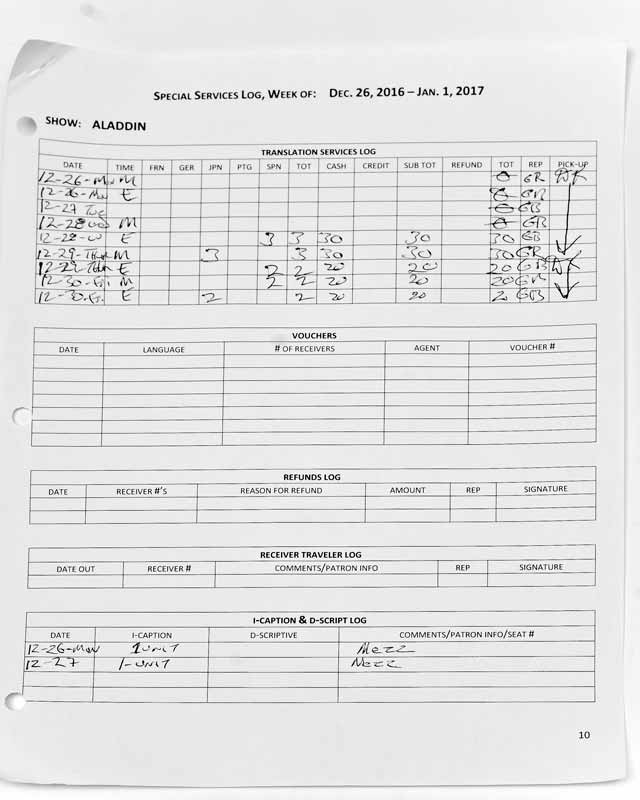 SPECIAL SERVICES LOG, WEEK OF: DEC. 26, 2016 – JAN. 1, 2017
SHOW: ALADDIN
TRANSLATION SERVICES LOG
DATE TIME FRN GER JPN PTG SPN TOT CASH CREDIT SUB TOT REFUND TOT REP PICK-UP
12-26-Mon M 0 GR
12-26-Mon E 0 GB
12-27 Tue 0 GB
12-28 M 0 GB
12-28-W E 3 3 30 30 30 GB
12-29-Thur M 3 3 30 30 30 GR
12-29-Thur E 2 2 20 20 20 GB
12-30-Fri M 2 2 20 20 20 GB
12-30-Fri E 2 2 20 20 GB
VOUCHERS
DATE LANGUAGE # OF RECEIVERS AGENT VOUCHER #
REFUNDS LOG
DATE RECEIVER #'S REASON FOR REFUND AMOUNT REP SIGNATURE
RECEIVER TRAVELER LOG
DATE OUT RECEIVER # COMMENTS/PATRON INFO REP SIGNATURE
I-CAPTION & D-SCRIPT LOG
DATE I-CAPTION D-SCRIPTIVE COMMENTS/PATRON INFO/SEAT #
12-26-Mon 1 UNIT Mezz
12-27 1-UNIT Mezz
10